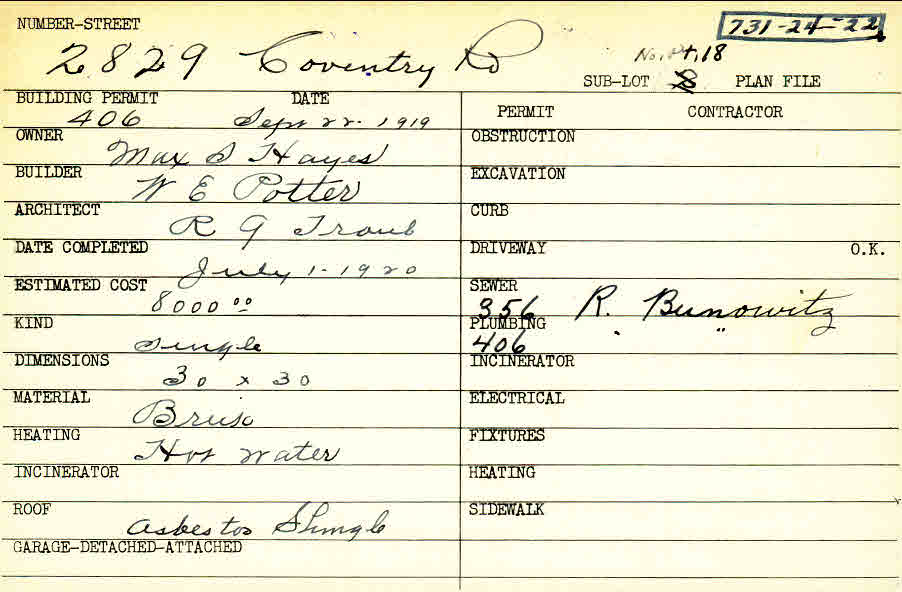 NUMBER-STREET
731-24-22
2829 Coventry Rd
No. pt. 18
SUB-LOT 8 PLAN FILE
BUILDING PERMIT DATE
406 Sept 22. 1919
OWNER
Max S Hayes
BUILDER
W E Potter
ARCHITECT
R G Traub
DATE COMPLETED
July 1-1920
ESTIMATED COST
8000 00
KIND
Single
DIMENSIONS
30 x 30
MATERIAL
HEATING
Hot Water
INCINERATOR
ROOF
Asbestos Shingle
GARAGE-DETACHED-ATTACHED
PERMIT CONTRACTOR
OBSTRUCTION
EXCAVATION
CURB
DRIVEWAY O.K.
SEWER
356 R. Bunowitz
PLUMBING
406 " "
INCINERATOR
ELECTRICAL
FIXTURES
HEATING
SIDEWALK